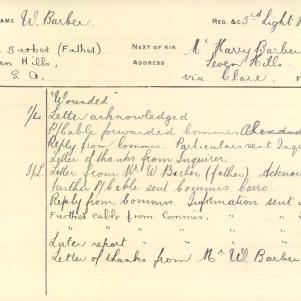 NAME W. Barber REG. &C 3rd Light H
Barber (Father) NEXT OF KIN Mr Harry Barber
en Hills, ADDRESS Seven Hills
S. A. via Clare.
"Wounded"
Letter acknowledged
P/Cable forwarded Commis
Reply from Commis. Particulars sent Inqu
Letter of thanks from Inquirer
Letter from Mr W Barber (father) Acknow
Further P/Cable sent Commis Cairo
Reply from Commis. Information sent
Further cable from Commis. " "
" " " " "
Later report
Letter of thanks from Mr W. Barber